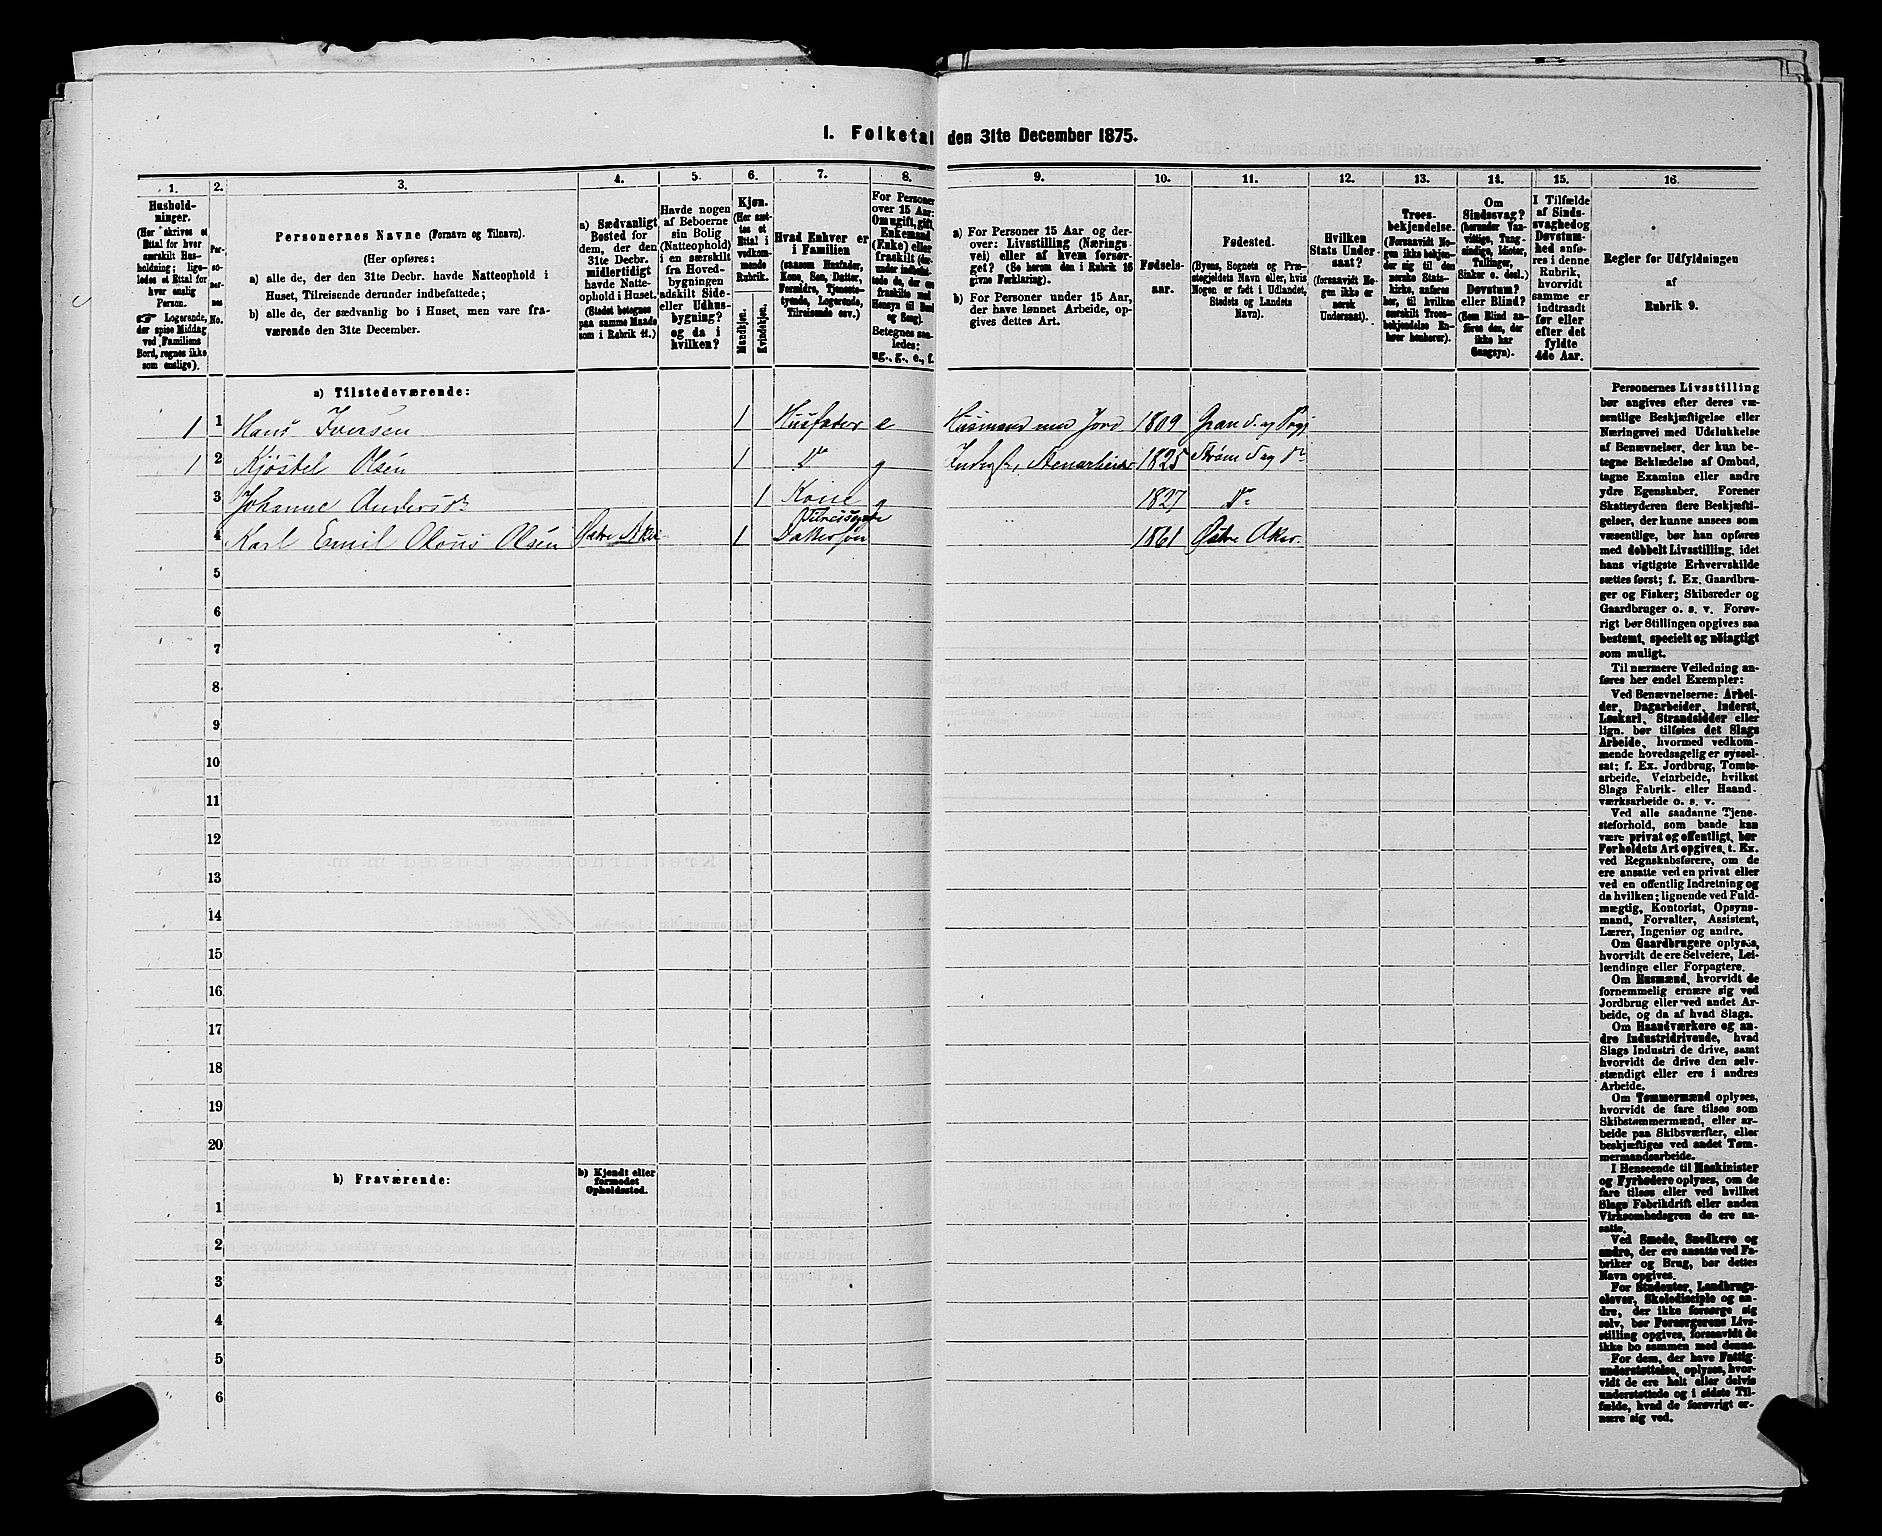 I. Folketal den 31te December 1875.
1. 2. 3. 4. 5. 6. 7. 8. 9. 10. 11. 12. 13. 14. 15. 16.
Hushold-
ninger.
(Her skrives et
Ettal for hver
særskilt Hus-
holdning; lige-
ledes et Ettal
for hver
enslig
Person.
☞ Logerende,
der spise Middag
ved Familiens
Bord, regnes ikke
som enslige).
Per-
so-
ner-
nes
No.
Personernes Navne (Fornavn og Tilnavn).
(Her opføres:
a) alle de, der den 31te Decbr. havde Natteophold i
Huset, Tilreisende derunder indbefattede;
b) alle de, der sædvanlig bo i Huset, men vare fra-
værende den 31te December.
a) Sædvanligt
Bosted for
dem, der den
31te Decbr.
midlertidigt
havde Natte-
ophold i Huset.
(Stedet betegnes
paa samme Maade
som i Rubrik 11.)
Havde nogen
af Beboerne
sin Bolig
(Natteophold)
i en særskilt
fra Hoved-
bygningen
adskilt Side-
eller Udhus-
bygning?
og da i
hvilken?
Kjøn.
(Her sæt-
tes et
Ettal i
vedkom-
mende
Rubrik.
Mandkjøn.
Kvindekjøn.
Hvad Enhver er
i Familien
(saasom Husfader,
Kone, Søn, Datter,
Forældre, Tjeneste-
tyende, Logerende,
Tilreisende osv.)
For Personer
over 15 Aar:
Om ugift, gift,
Enkemand
(Enke) eller
fraskilt
Betegnes saa-
ledes:
ug., g., e., f.
a) For Personer 15 Aar og der-
over: Livsstilling (Nærings-
vei) eller af hvem forsør-
get? (Se herom den i Rubrik 16
givne Forklaring).
b) For Personer under 15 Aar,
der have lønnet Arbeide, op-
gives dettes Art.
Fødsels-
aar.
Fødested.
(Byens, Sognets og Præ-
stegjeldets Navn eller, hvis
Nogen er født i Udlandet,
Stedets og Landets
Navn).
Hvilken
Stats Under-
saat?
(forsaavidt No-
gen ikke er
norsk
Undersaat).
Troes-
bekjendelse.
(Forsaavidt No-
gen ikke bekjen-
der sig til den
norske Stats-
kirke, anføres
her, til hvilken
særskilt Troes-
bekjendelse En-
hver henhører).
Om
Sindssvag?
(herunder Van-
vittige, Tung-
sindige, Idioter,
Tullinger,
Sinker o. desl.)
Døvstum?
eller Blind?
(Som Blind an-
føres den, der
ikke har
Gangsyn).
I Tilfælde
af Sinds-
svaghed og
Døvstum-
hed anfø-
res i denne
Rubrik,
hvorvidt
samme er
indtraadt
før eller
efter det
fyldte
4de Aar.
Regler for Udfyldningen
af
Rubrik 9.
a) Tilstedeværende:
1 1 Hans Iversen 1 Husfader e Husmand med Jord 1809 Gran S. og Prgj
1 2 Kjøstel Olsen 1 do g Stenarbeider 1825 Strøm S og do
3 Johanne Andersdr 1 Kone g 1827 do
4 Karl Emil Olaus Olsen Østre Aker 1 Tilreisende Dattersøn 1861 Østre Aker.
5
6
7
8
9
10
11
12
13
14
15
16
17
18
19
20
b) Fraværende: b) Kjendt eller
formodet
Opholdssted.
1
2
3
4
5
6
Personernes Livsstilling
bør angives efter deres væ-
sentlige Beskjæftigelse eller
Næringsvei med Udelukkelse
af Benævnelser, der kun be-
tegne Beklædelse af Ombud,
tagne Examina eller andre
ydre Egenskaber. Forener
Skatteyderen flere Beskjæfti-
gelser, der kunne ansees som
væsentlige, bør han opføres
med dobbelt Livsstilling, idet
hans vigtigste Erhvervskilde
sættes først; f. Ex. Gaardbru-
ger og Fisker; Skibsreder og
Gaardbruger o. s. v. Forøv-
rigt bør Stillingen opgives saa
bestemt, specielt og nöiagtigt
som muligt.
Til nærmere Veiledning an-
føres her endel Exempler:
Ved Benævnelserne: Arbei-
der, Dagarbeider, Inderst,
Løskarl, Strandsidder eller
lign. bør tilføies det Slags
Arbeide, hvormed vedkom-
mende hovedsagelig er syssel-
sat; f. Ex. Jordbrug, Tomte-
arbeide, Veiarbeide, hvilket
Slags Fabrik- eller Haand-
værksarbeide o. s. v.
Ved alle saadanne Tjene-
steforhold, som baade kan
være privat og offentligt, bør
Forholdets Art opgives, t. Ex.
ved Regnskabsførere, om de
ere ansatte ved en privat eller
ved en offentlig Indretning og
da hvilken; lignende ved Fuld-
mægtig, Kontorist, Opsyns-
mand, Forvalter, Assistent,
Lærer, Ingeniør og andre.
Om Gaardbrugere oplyses,
hvorvidt de ere Selveiere, Lei-
lændinge eller Forpagtere.
Om Husmænd, hvorvidt de
fornemmelig ernære sig ved
Jordbrug eller ved andet Ar-
beide, og da af hvad Slags.
Om Haandværkere og an-
dre Industridrivende, hvad
Slags Industri de drive, samt
hvorvidt de drive den selv-
stændigt eller ere i andres
Arbeide.
Om Tømmermænd oplyses,
hvorvidt de fare tilsøs som
Skibstømmermænd, eller ar-
beide paa Skibsværfter, eller
beskjæftiges ved andet Tøm-
mermandsarbeide.
I Henseende til Maskinister
og Fyrbødere oplyses, om de
fare tilsøs eller ved hvilket
Slags Fabrikdrift eller anden
Virksomhedsgren de ere an-
satte.
Ved Smede, Snedkere og
andre, der ere ansatte ved Fa-
briker og Brug, bør dettes
Navn opgives.
For Studenter, Landbrugs-
elever, Skoledisciple og an-
dre, der ikke forsørge sig
selv, bør Forsørgerens Livs-
stilling opgives, forsaavidt de
ikke bo sammen med denne.
For dem, der have Fattig-
understøttelse, oplyses, hvor-
vidt de ere helt eller delvis
understøttede og i sidste Til-
fælde, hvad de forøvrigt er-
nære sig ved.